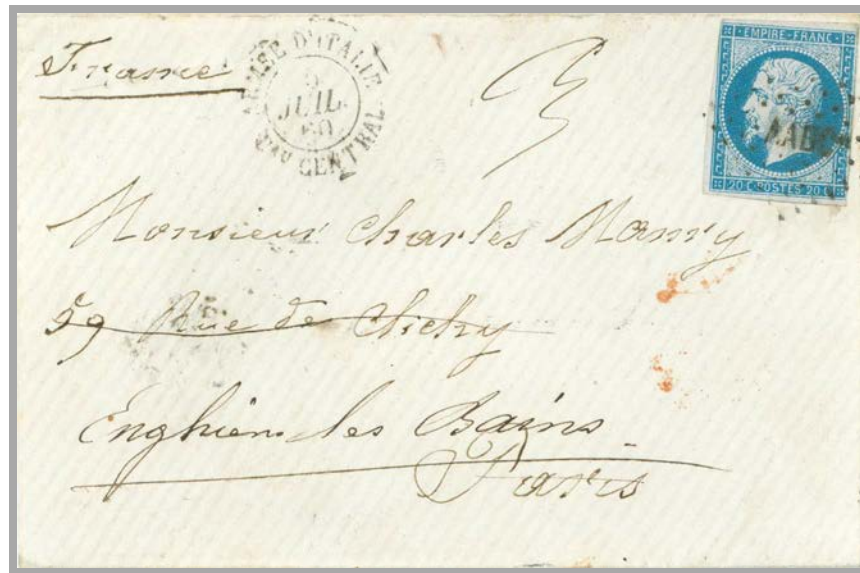 France
ARMÉE D'ITALIE
5
JUIL.
60
Bau CENTRAL
EMPIRE-FRANC
20 C POSTES 20 C
Monsieur Charles Mamry
59 Rue de Clichy
Enghien les Bains
Paris